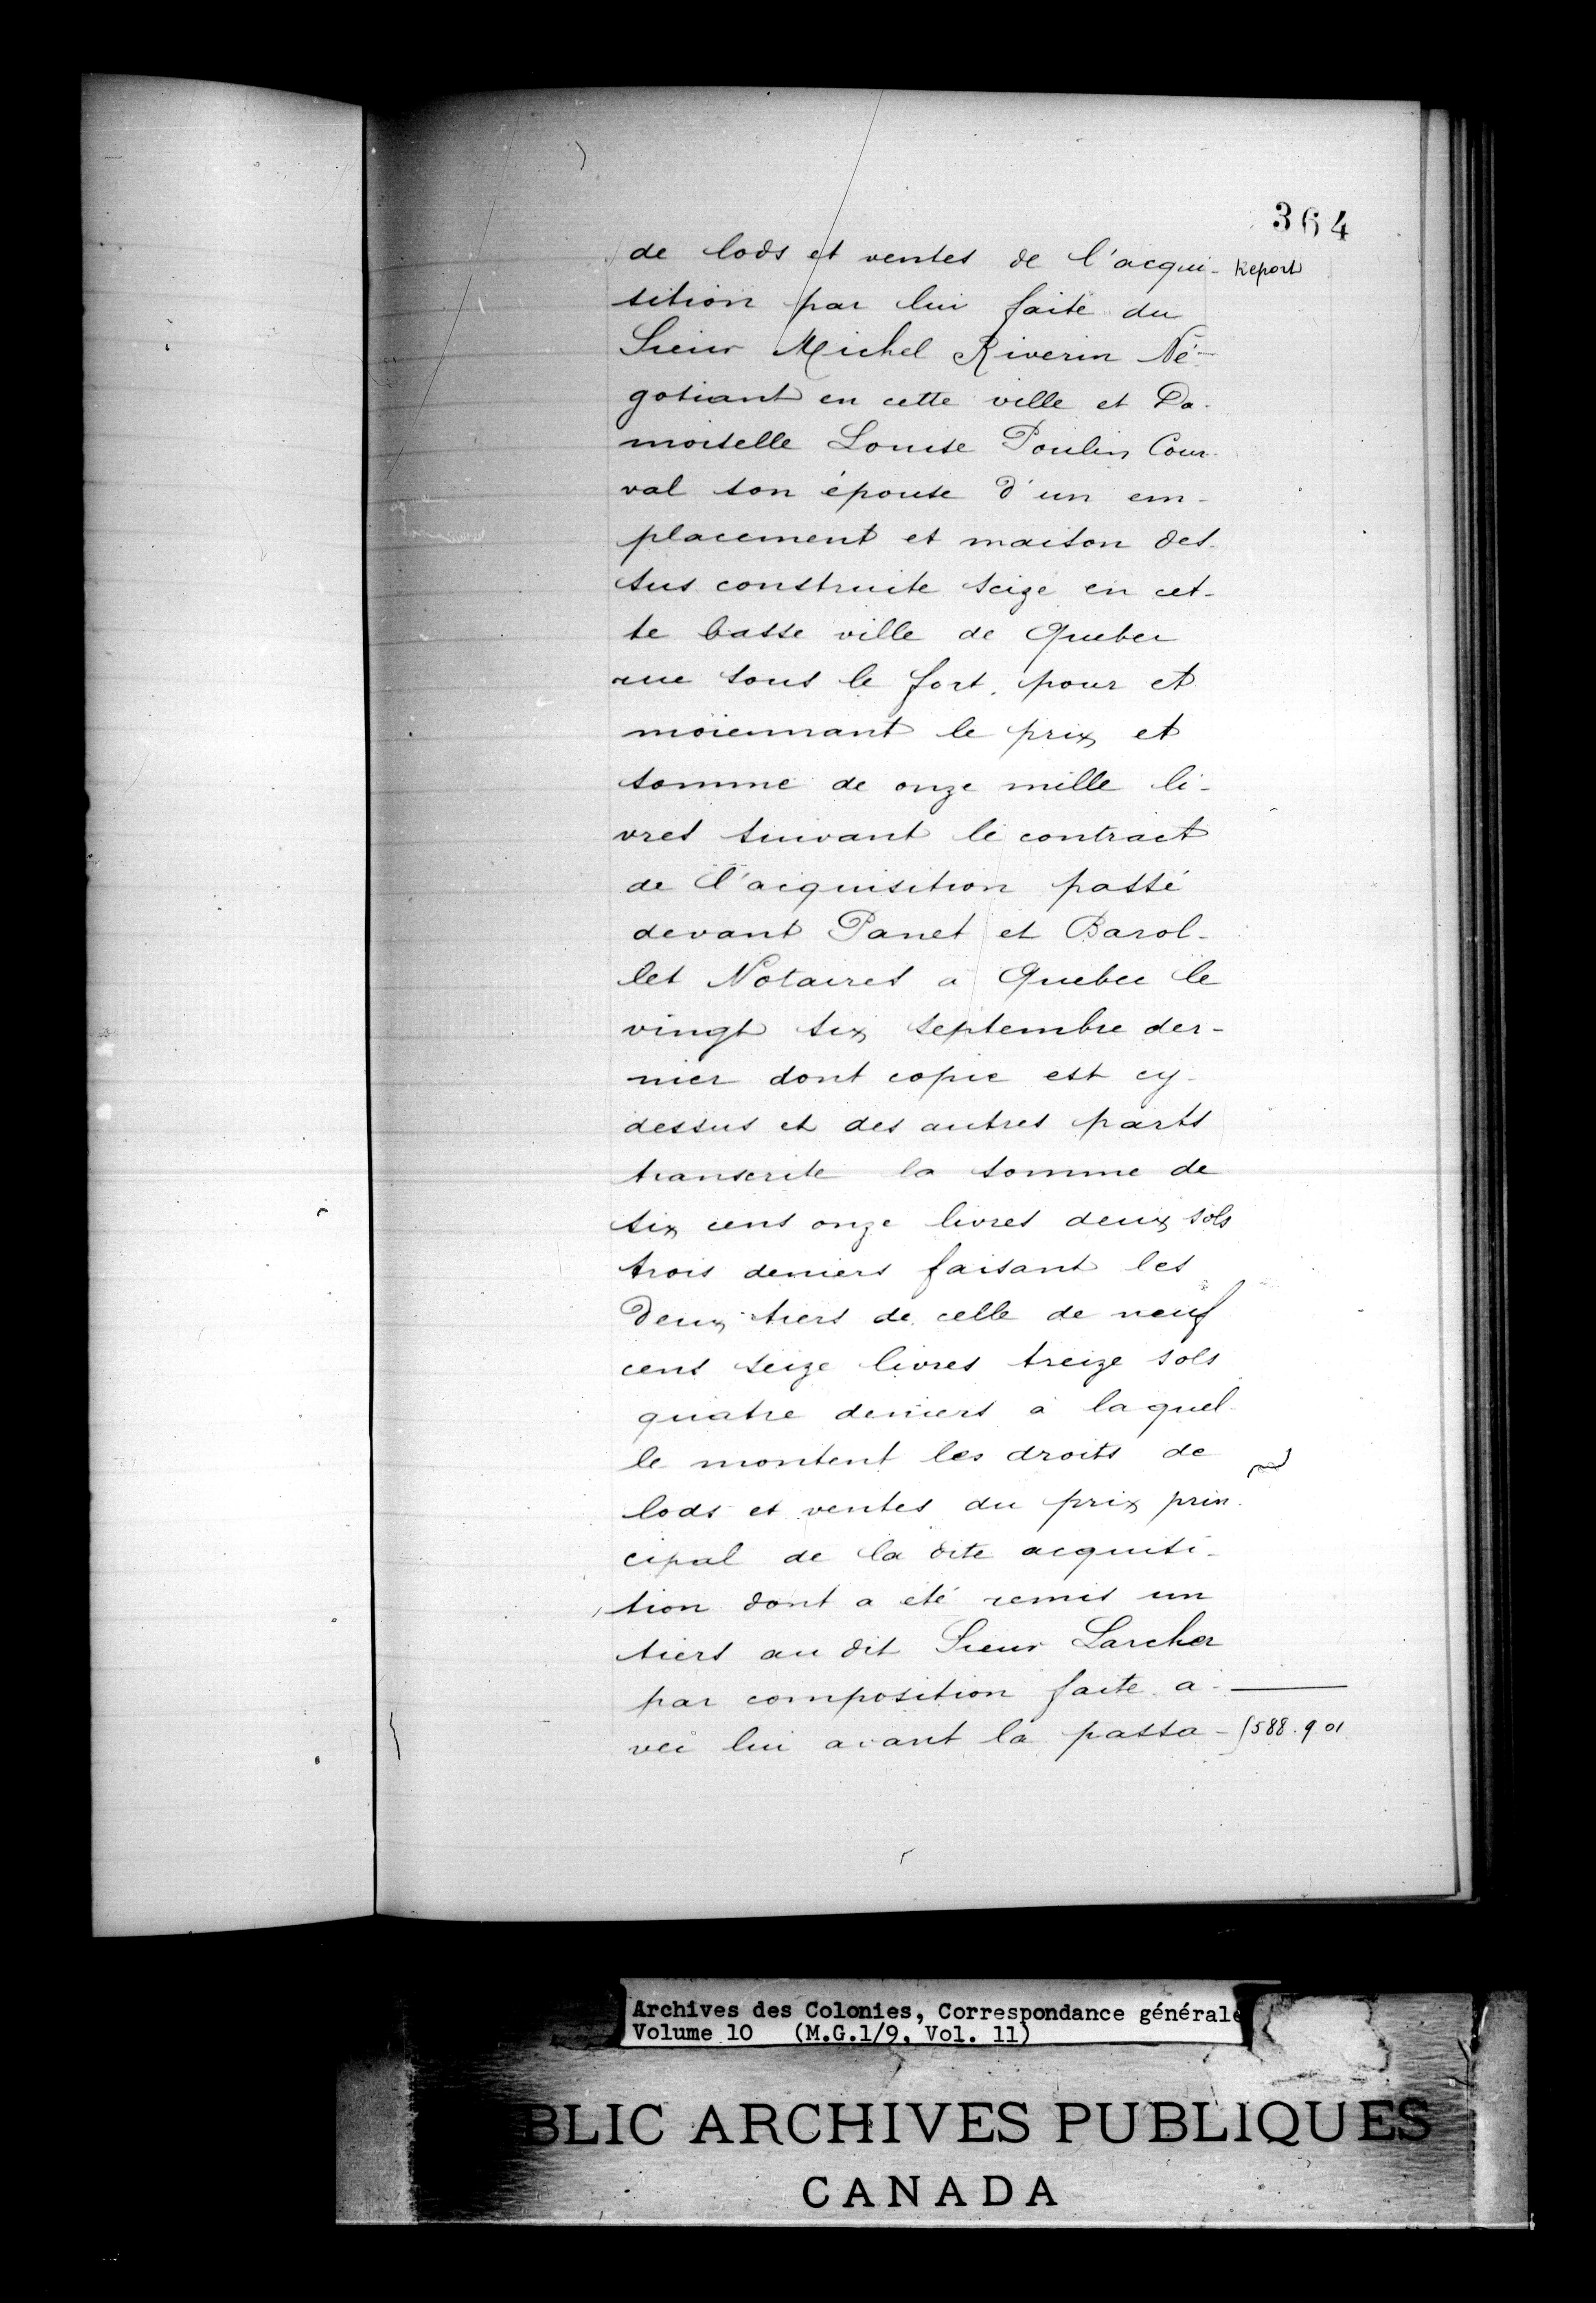 364
de lods et ventes de l'acqui- Report
sition par lui faite du
Sieur Michel Riverin Né-
gotiant en cette ville et Da-
moiselle Louise Poulin Cour-
val son épouse d'un em-
placement et maison des-
sus construite seize en cet-
te basse ville de Quebec
rue sous le fort, pour et
moiennant le prix et
somme de onze mille li-
vres suivant le contract
de l'acquisition passé
devant Panet et Barol-
let Notaires a Quebec le
vingt six septembre der-
nier dont copie est cy-
dessus et des autres parts
transcrite la somme de
six cens onze livres deux sols
trois deniers faisant les
Deux tiers de celle de neuf
cens seize livres treize sols
quatre deniers a laquel-
le montent les droits de
lods et ventes du prix prin-
cipal de la dite acquisi-
tion dont a eté remis un
tiers au dit Sieur Larcher
par composition faite a-
vec lui avant la passa- 588.9.01
Archives des Colonies, Correspondance générale
Volume 10 (M.G.1/9, Vol. 11)
BLIC ARCHIVES PUBLIQUES
CANADA